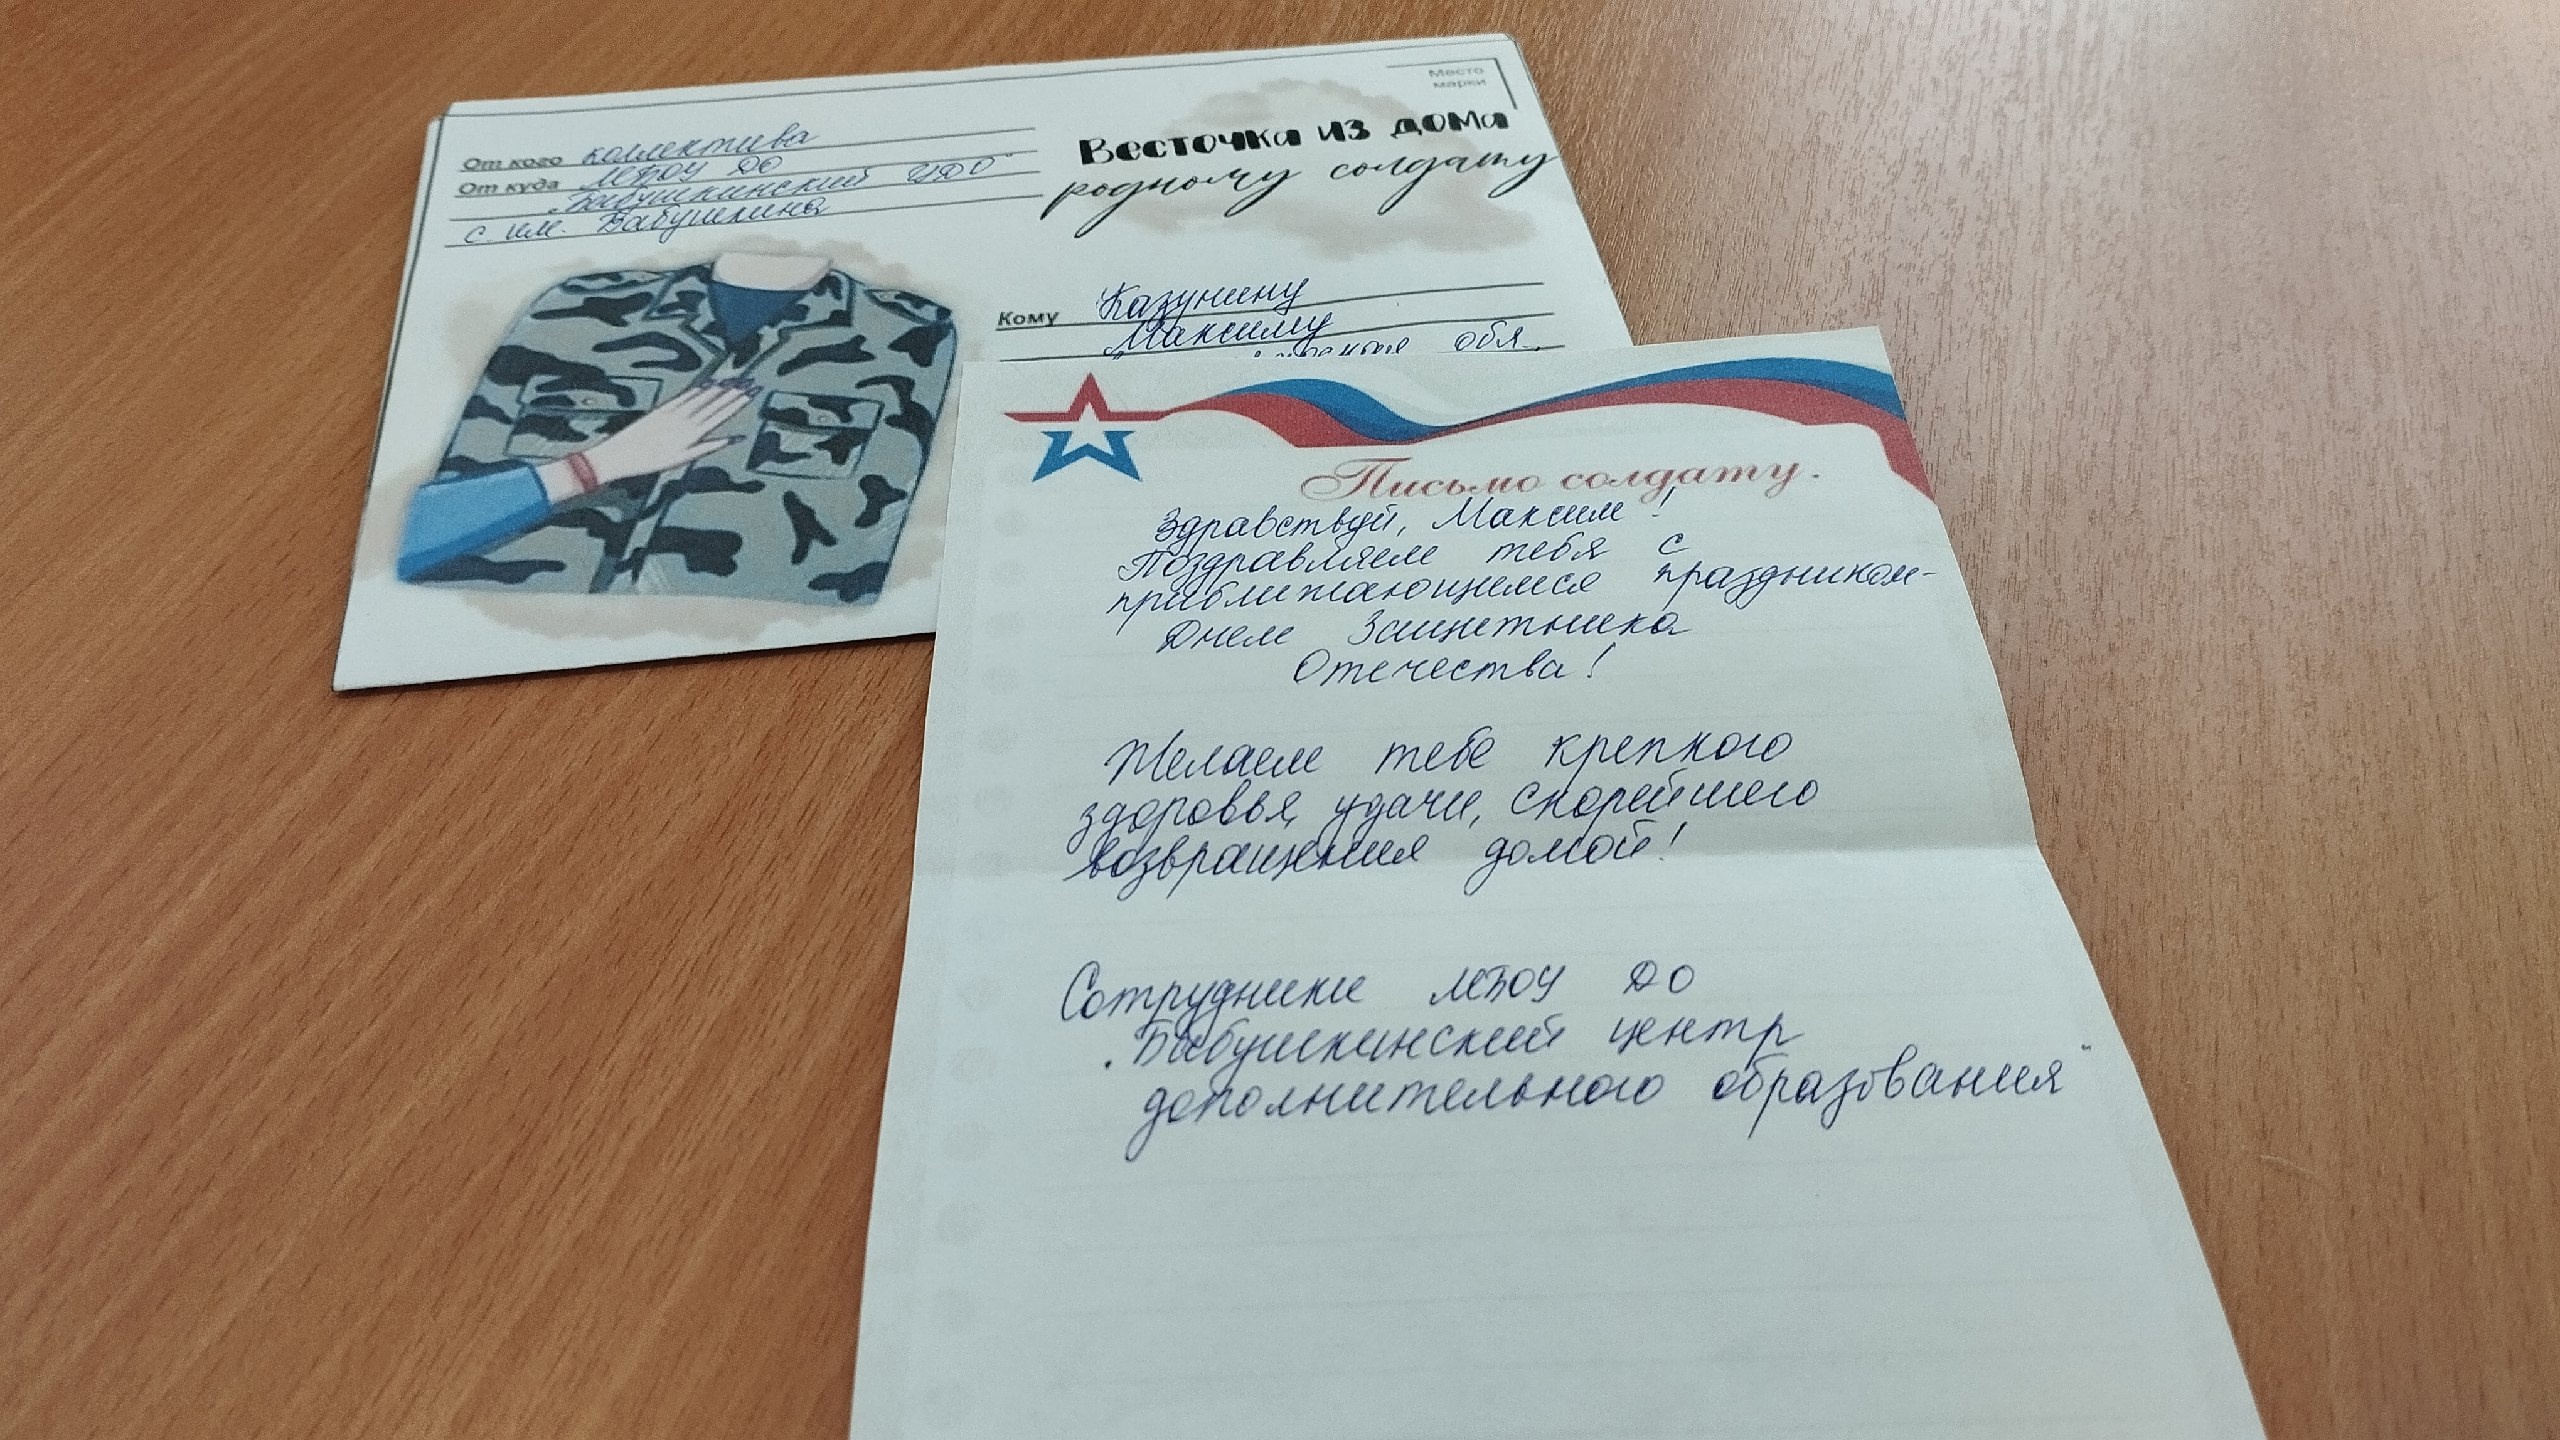 Место
марки
Весточка из дома
родному солдату
От кого коллектива
От куда МБОУ ДО
„Бабушкинский ЦДО"
с. им. Бабушкина
Кому Казунину
Максиму
обл.
Письмо солдату.
Здравствуй, Максим!
Поздравляем тебя с
приближающимся праздником-
Днем Защитника
Отечества!
Желаем тебе крепкого
здоровья, удачи, скорейшего
возвращения домой!
Сотрудники МБОУ ДО
„Бабушкинский центр
дополнительного образования"